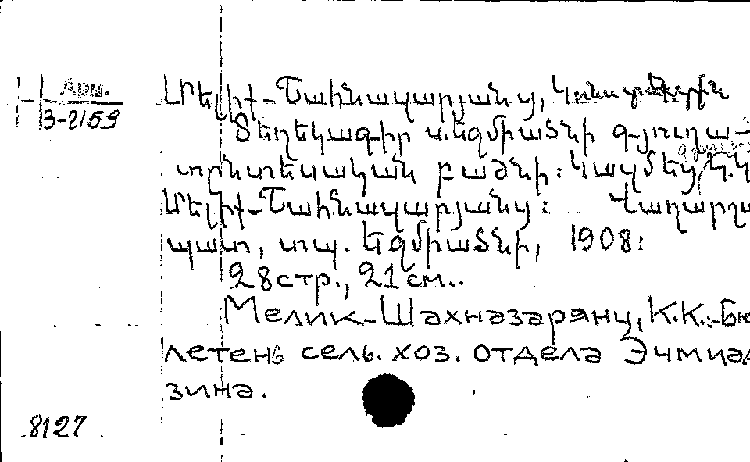 Арм.
3-2159
Մելիք-Շահնազարյանց, Կոնստանտին
Տեղեկագիր Էջմիածնի գյուղա-
տնտեսական բաժնի: Կազմեց Կ.Կ
Մելիք-Շահնազարյանց: Վաղարշա
պատ, տպ. Էջմիածնի, 1908:
28стр., 21см..
Мелик-Шахназарянц, К.К.-Бю
летень сель. хоз. отдела Эчмиад
зина.
8127